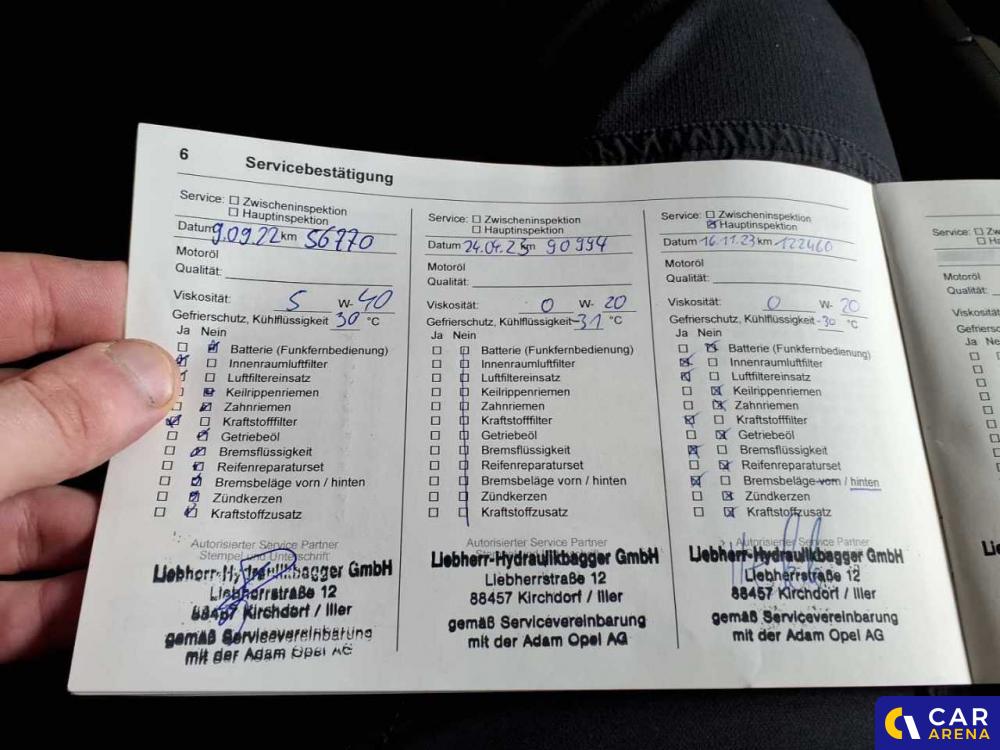 6 Servicebestätigung
Service: ☐ Zwischeninspektion
☐ Hauptinspektion
Datum 9.09.22 km 56770
Motoröl
Qualität:
Viskosität: 5 W- 40
Gefrierschutz, Kühlflüssigkeit 30 °C
Ja Nein
Batterie (Funkfernbedienung)
Innenraumluftfilter
Luftfiltereinsatz
Keilrippenriemen
Zahnriemen
Kraftstofffilter
Getriebeöl
Bremsflüssigkeit
Reifenreparaturset
Bremsbeläge vorn / hinten
Zündkerzen
Kraftstoffzusatz
Autorisierter Service Partner
Stempel und Unterschrift
Liebherr-Hydraulikbagger GmbH
Liebherrstraße 12
88457 Kirchdorf / Iller
gemäß Servicevereinbarung
mit der Adam Opel AG
Service: ☐ Zwischeninspektion
☐ Hauptinspektion
Datum 24.04.23 km 90994
Motoröl
Qualität:
Viskosität: 0 W- 20
Gefrierschutz, Kühlflüssigkeit -31 °C
Ja Nein
Batterie (Funkfernbedienung)
Innenraumluftfilter
Luftfiltereinsatz
Keilrippenriemen
Zahnriemen
Kraftstofffilter
Getriebeöl
Bremsflüssigkeit
Reifenreparaturset
Bremsbeläge vorn / hinten
Zündkerzen
Kraftstoffzusatz
Autorisierter Service Partner
Liebherr-Hydraulikbagger GmbH
Liebherrstraße 12
88457 Kirchdorf / Iller
gemäß Servicevereinbarung
mit der Adam Opel AG
Service: ☐ Zwischeninspektion
☒ Hauptinspektion
Datum 16.11.23 km 122460
Motoröl
Qualität:
Viskosität: 0 W- 20
Gefrierschutz, Kühlflüssigkeit -30 °C
Ja Nein
Batterie (Funkfernbedienung)
Innenraumluftfilter
Luftfiltereinsatz
Keilrippenriemen
Zahnriemen
Kraftstofffilter
Getriebeöl
Bremsflüssigkeit
Reifenreparaturset
Bremsbeläge vorn / hinten
Zündkerzen
Kraftstoffzusatz
Autorisierter Service Partner
Liebherr-Hydraulikbagger GmbH
Liebherrstraße 12
88457 Kirchdorf / Iller
gemäß Servicevereinbarung
mit der Adam Opel AG
Service:
Motoröl
Qualität:
Viskosität:
Ja
CAR
ARENA